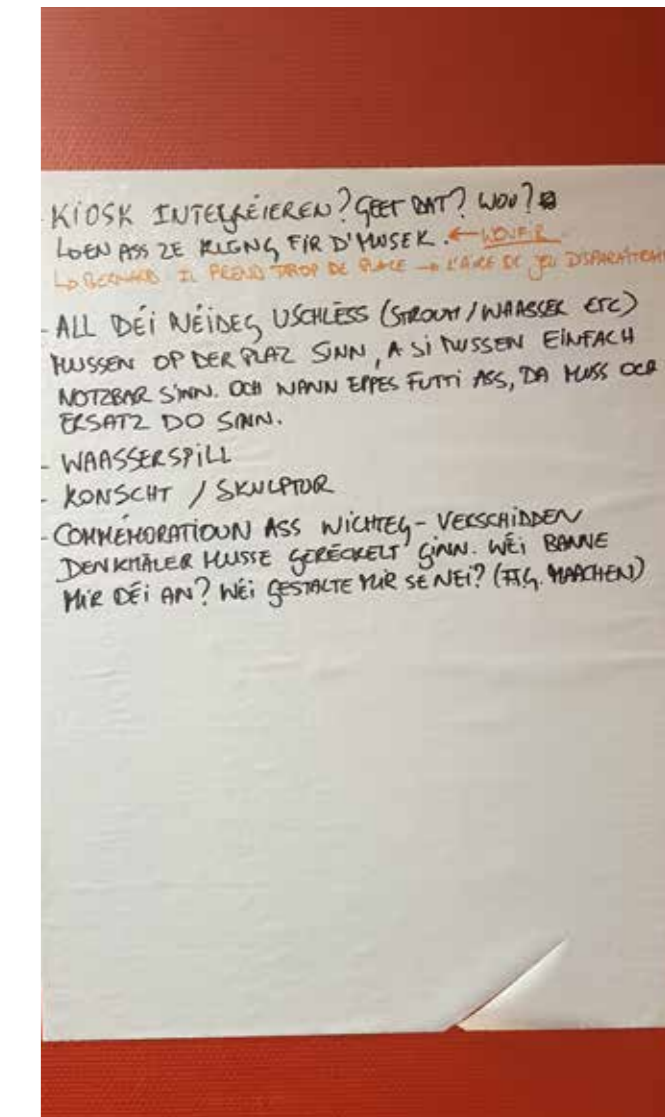 - KIOSK INTEGRÉIEREN? GEET DAT? WOU?
LOEN ASS ZE KLENG FIR D'MUSEK. ← WOUFIR
↳ BERNARD IL PREND TROP DE PLACE → L'AIRE DE JEU DISPARAÎTRAIT
- ALL DÉI NÉIDEG USCHLËSS (STROUM / WAASSER ETC)
MUSSEN OP DER PLAZ SINN, A SI MUSSEN EINFACH
NOTZBAR SINN. OCH WANN EPPES FUTTI ASS, DA MUSS OCH
ERSATZ DO SINN.
- WAASSERSPILL
- KONSCHT / SKULPTUR
- COMMÉMORATIOUN ASS WICHTEG - VERSCHIDDEN
DENKMÄLER MUSSE GERÉCKELT GINN. WÉI BANNE
MIR DÉI AN? WÉI GESTALTE MIR SE NEI? ( MAACHEN)